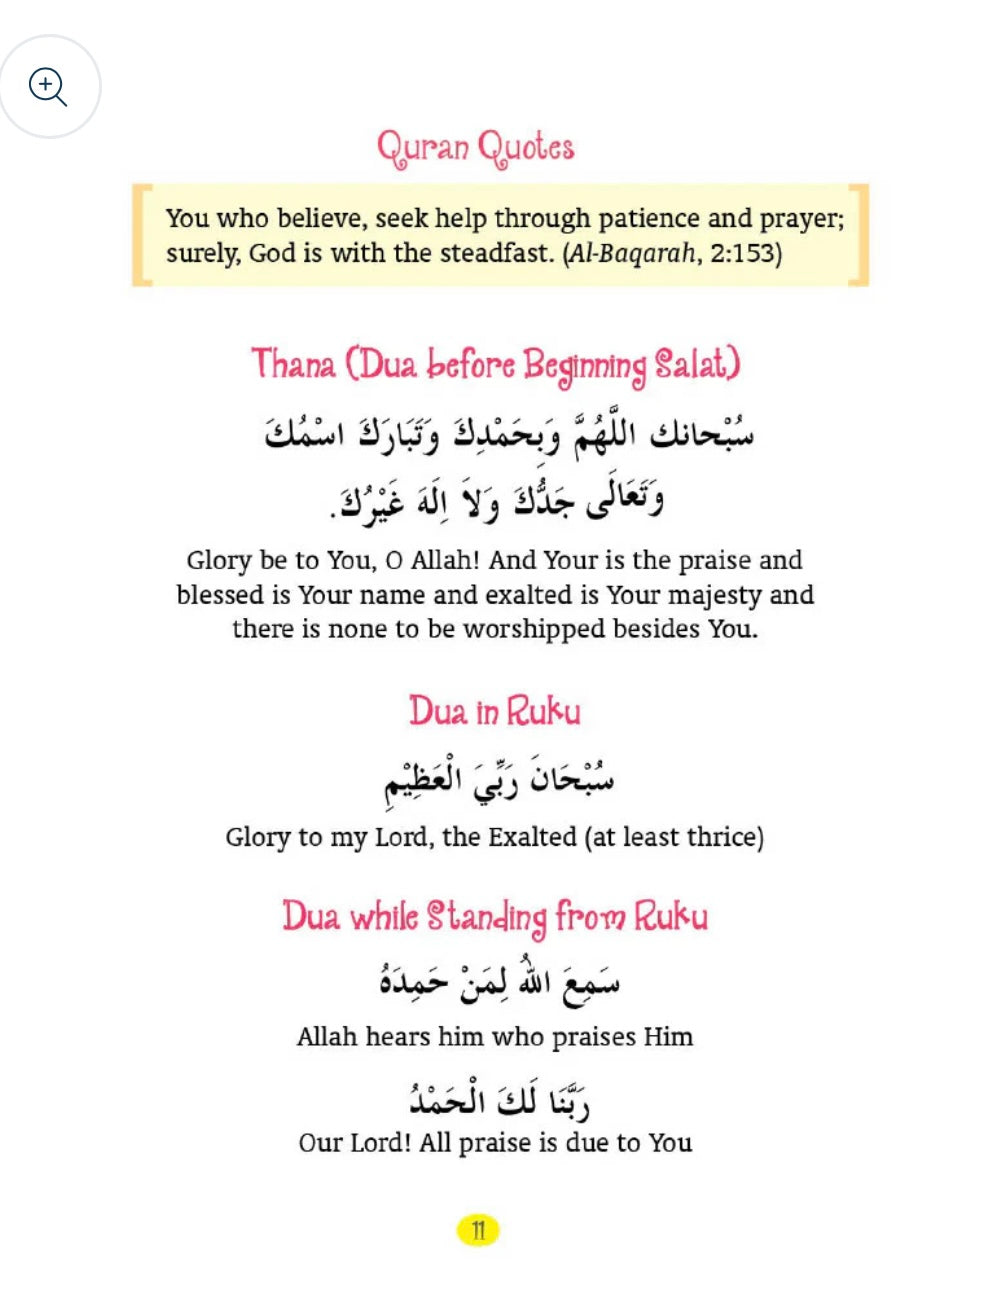 Quran Quotes
You who believe, seek help through patience and prayer;
surely, God is with the steadfast. (Al-Baqarah, 2:153)
Thana (Dua before Beginning Salat)
سُبْحانك اللَّهُمَّ وَبِحَمْدِكَ وَتَبَارَكَ اسْمُكَ
وَتَعَالَى جَدُّكَ وَلاَ اِلَهَ غَيْرُكَ.
Glory be to You, O Allah! And Your is the praise and
blessed is Your name and exalted is Your majesty and
there is none to be worshipped besides You.
Dua in Ruku
سُبْحَانَ رَبِّيَ الْعَظِيْمِ
Glory to my Lord, the Exalted (at least thrice)
Dua while Standing from Ruku
سَمِعَ اللهُ لِمَنْ حَمِدَهُ
Allah hears him who praises Him
رَبَّنَا لَكَ الْحَمْدُ
Our Lord! All praise is due to You
11